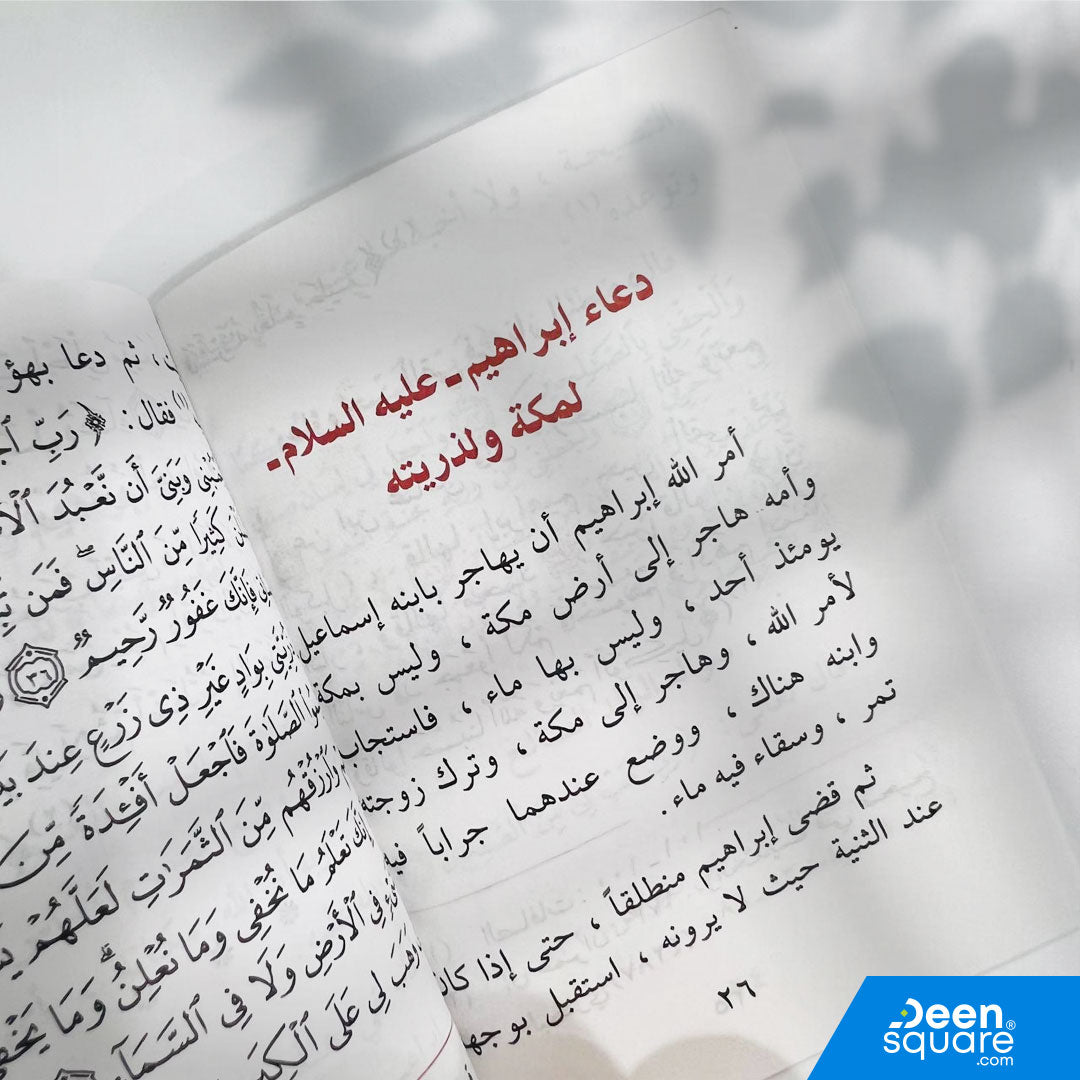 دعاء إبراهيم - عليه السلام -
لمكة ولذريته
أمر الله إبراهيم أن يهاجر بابنه إسماعيل
وأمه هاجر إلى أرض مكة ، وليس بمكة
يومئذ أحد ، وليس بها ماء ، فاستجاب
لأمر الله ، وهاجر إلى مكة ، وترك زوجته
وابنه هناك ، ووضع عندهما جراباً فيه
تمر ، وسقاء فيه ماء .
ثم قضى إبراهيم منطلقاً ، حتى إذا كان
عند الثنية حيث لا يرونه ، استقبل
٢٦
، ثم دعا
فقال: ﴿ رَبِّ
وَبَنِىَّ أَن نَّعْبُدَ
كَثِيرًا مِّنَ ٱلنَّاسِ ۖ فَمَن
فَإِنَّكَ غَفُورٌ رَّحِيمٌ ٣٦
بِوَادٍ غَيْرِ ذِى زَرْعٍ عِندَ
ٱلصَّلَوٰةَ فَٱجْعَلْ أَفْـِٔدَةً مِّنَ
وَٱرْزُقْهُم مِّنَ ٱلثَّمَرَٰتِ لَعَلَّهُمْ
تَعْلَمُ مَا نُخْفِى وَمَا نُعْلِنُ ۗ وَمَا
فِى ٱلْأَرْضِ وَلَا فِى
لِى عَلَى
Deen
square®
.com